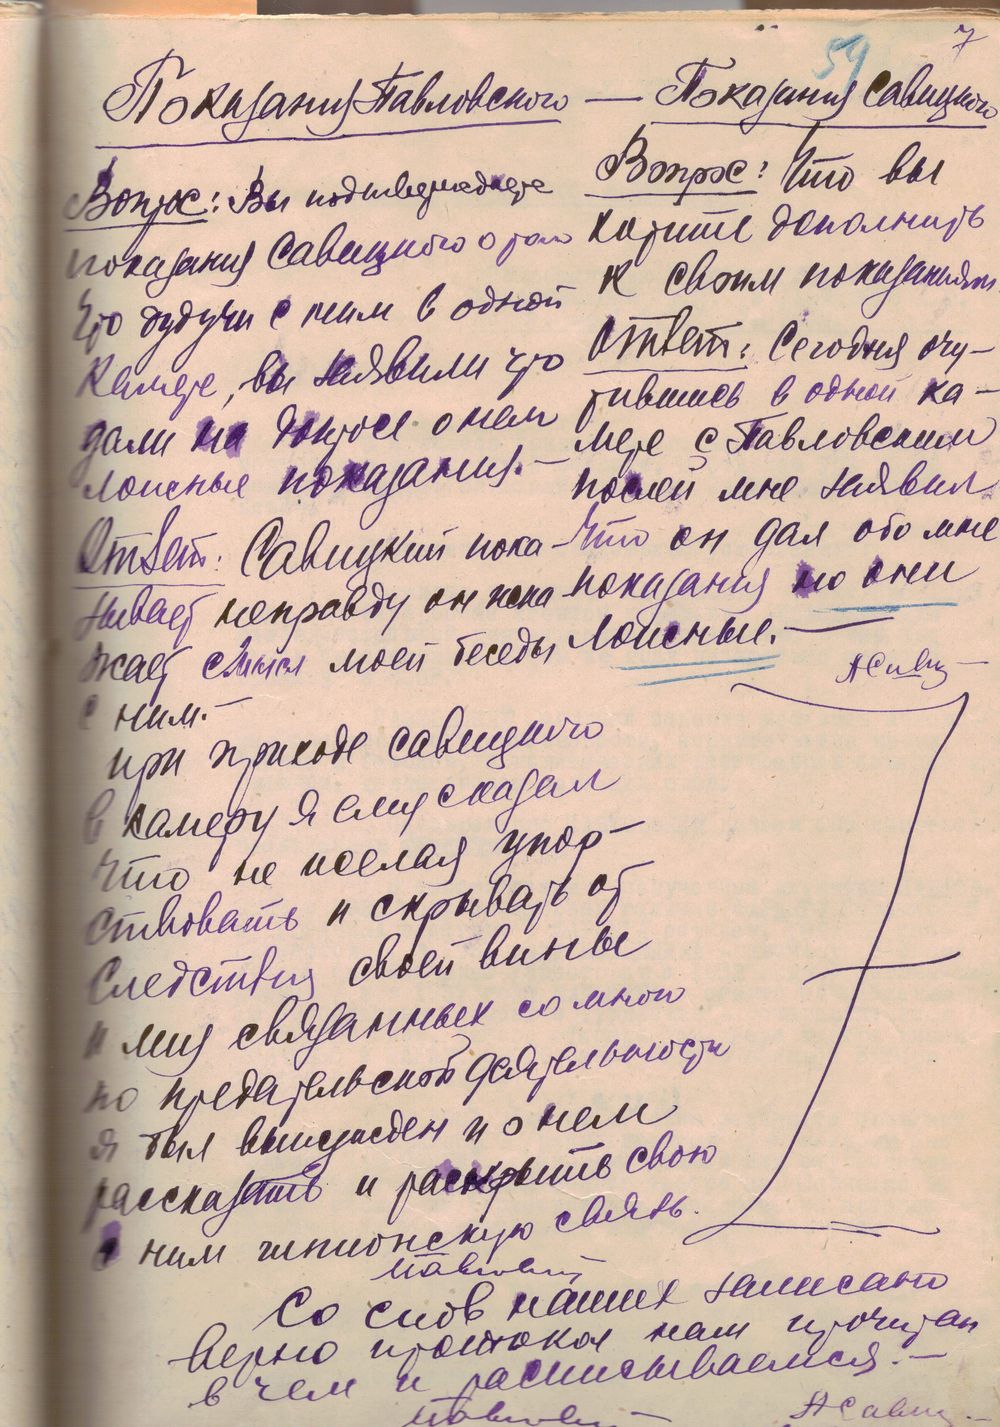 7
54
Показания Павловского — Показания Савицкого
Вопрос: Вы подтверждаете
показания Савицкого о том
что будучи с ним в одной
камере, вы заявили что
дали на допросе о нем
ложные показания. —
Ответ: Савицкий пока-
зывает неправду он иска-
жает смысл моей беседы
с ним. —
При приходе Савицкого
в камеру я ему сказал
что не желая упор-
ствовать и скрывать от
следствия своей вины
и лиц связанных со мною
по предательской деятельности
я был вынужден и о нем
рассказать и раскрыть свою
с ним шпионскую связь.
Вопрос: Что вы
хотите дополнить
к своим показаниям.
Ответ: Сегодня очу-
тившись в одной ка-
мере с Павловским
послед мне заявил
что он дал обо мне
показания но они
ложные. —
АСавиц
Павловский
Со слов наших записано
верно протокол нам прочитан
в чем и расписываемся. —
Павловский
АСавиц